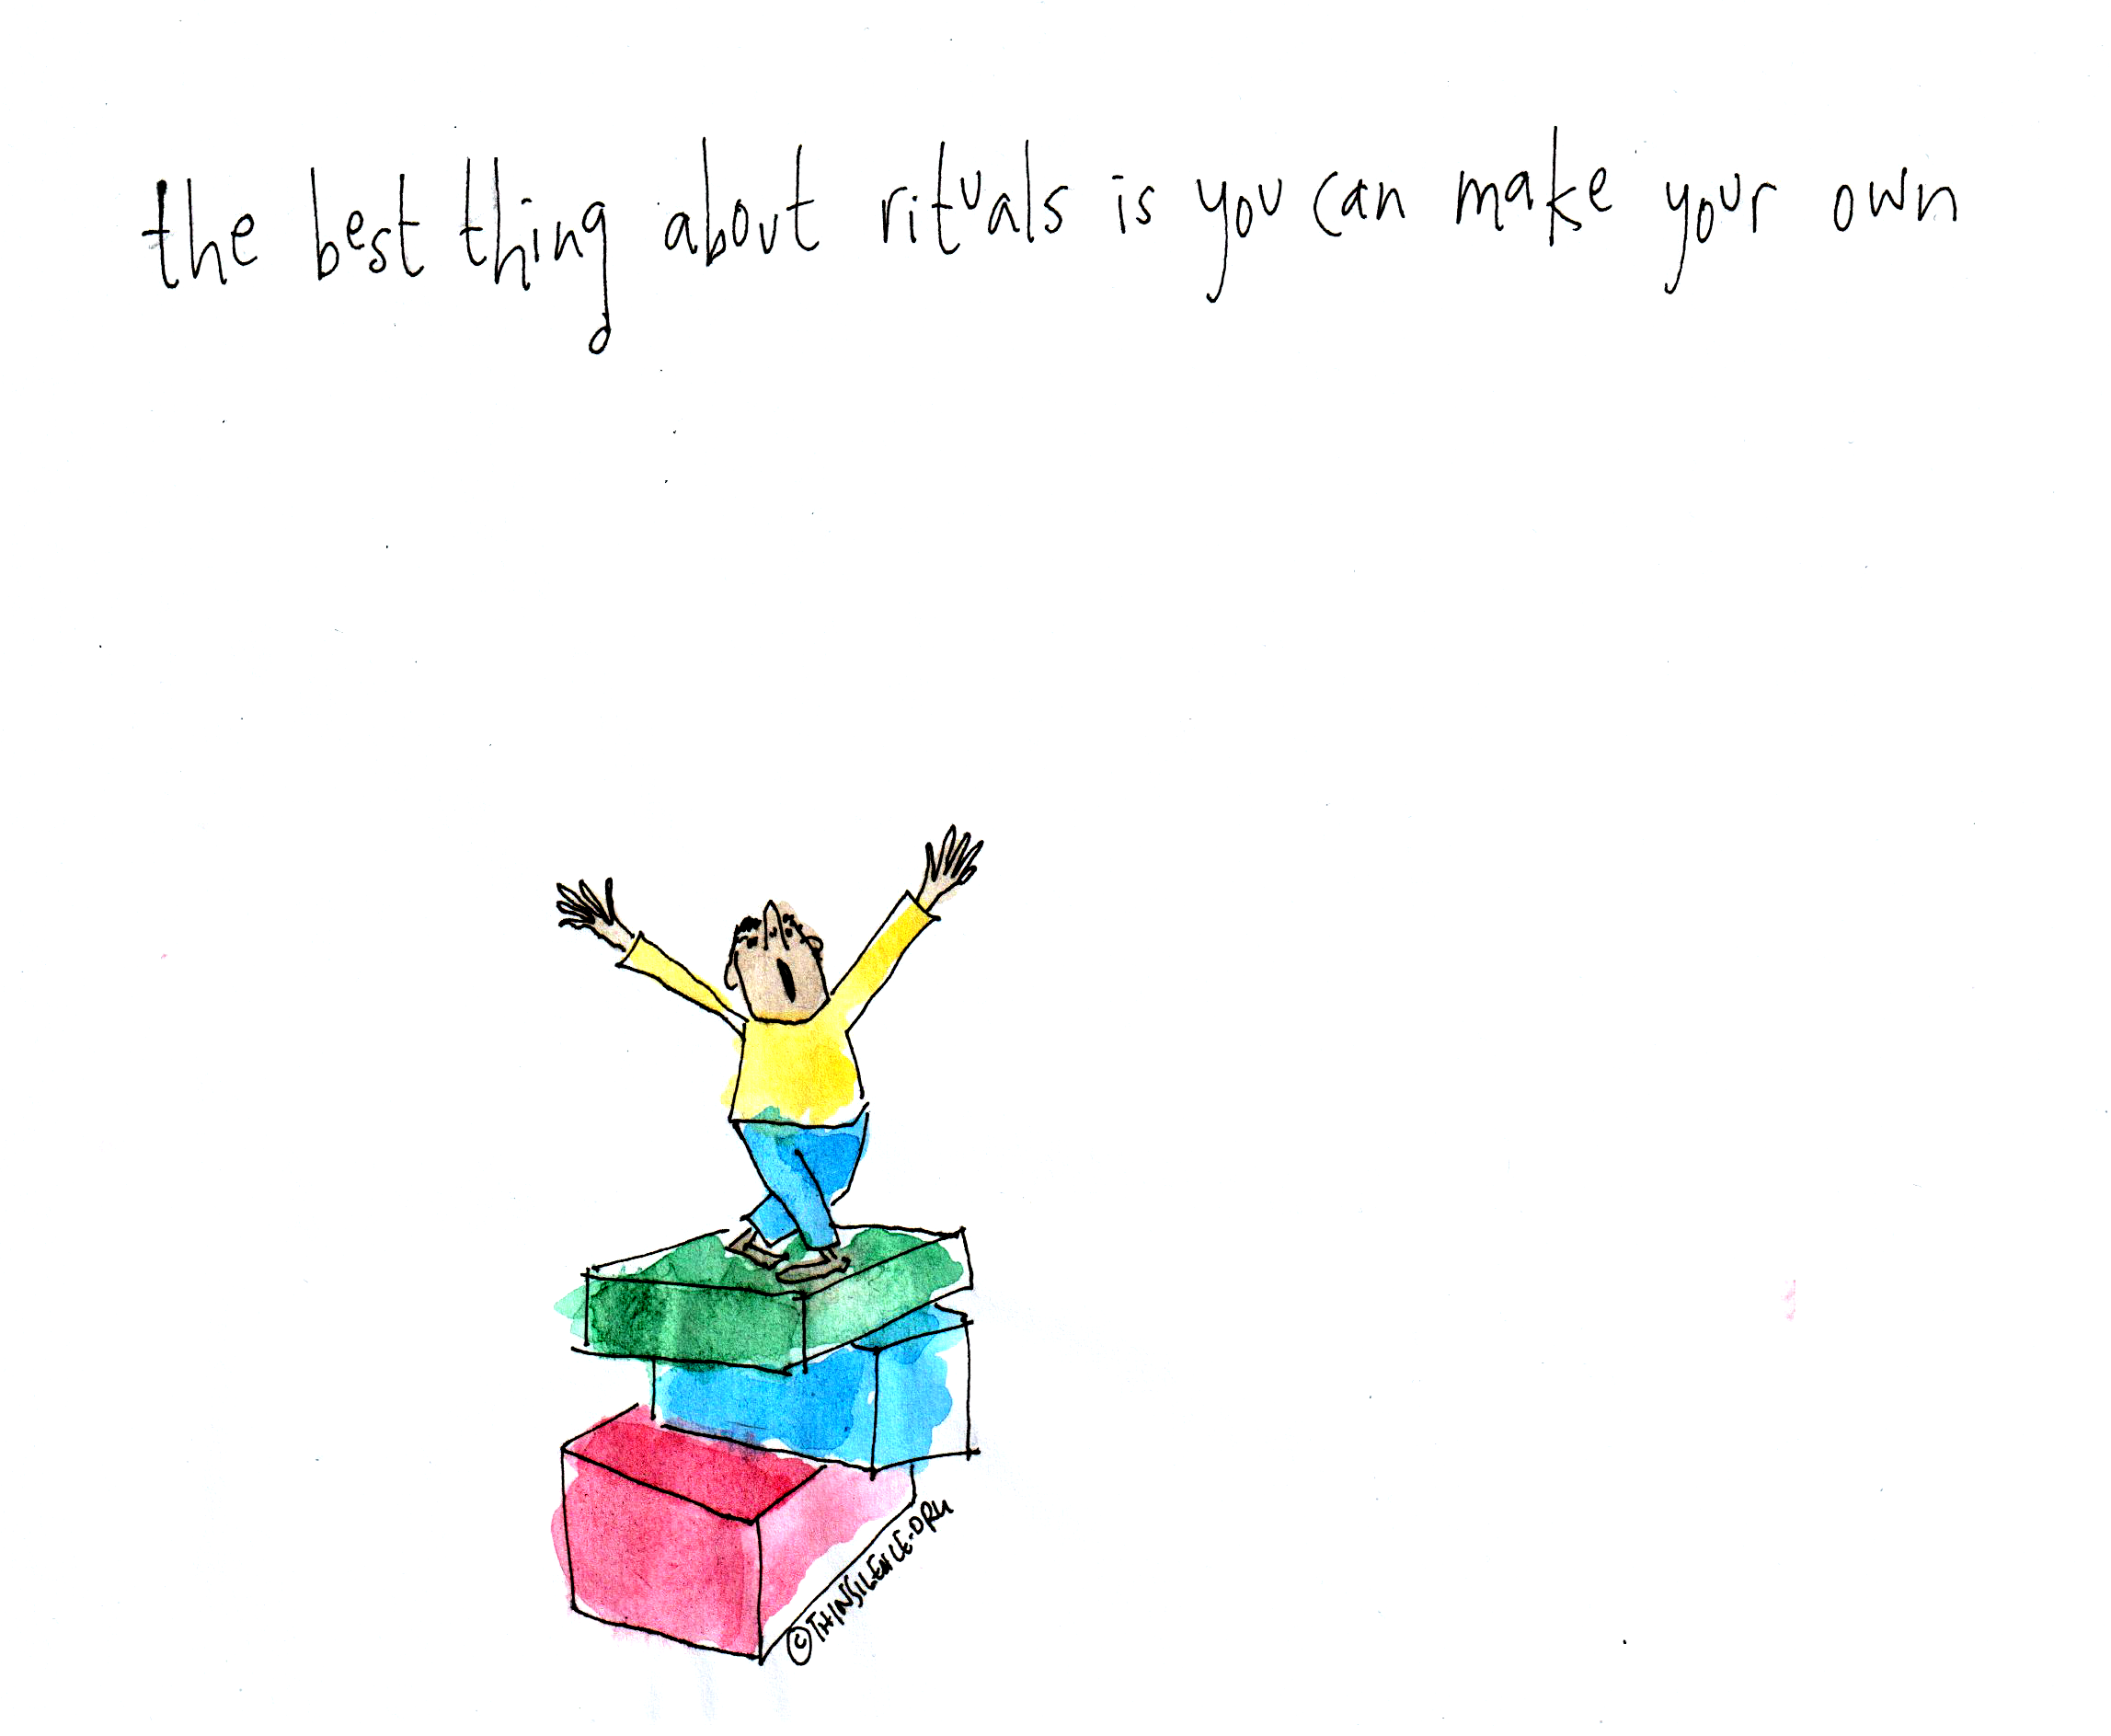 the best thing about rituals is you can make your own
© THINSILENCE.ORG